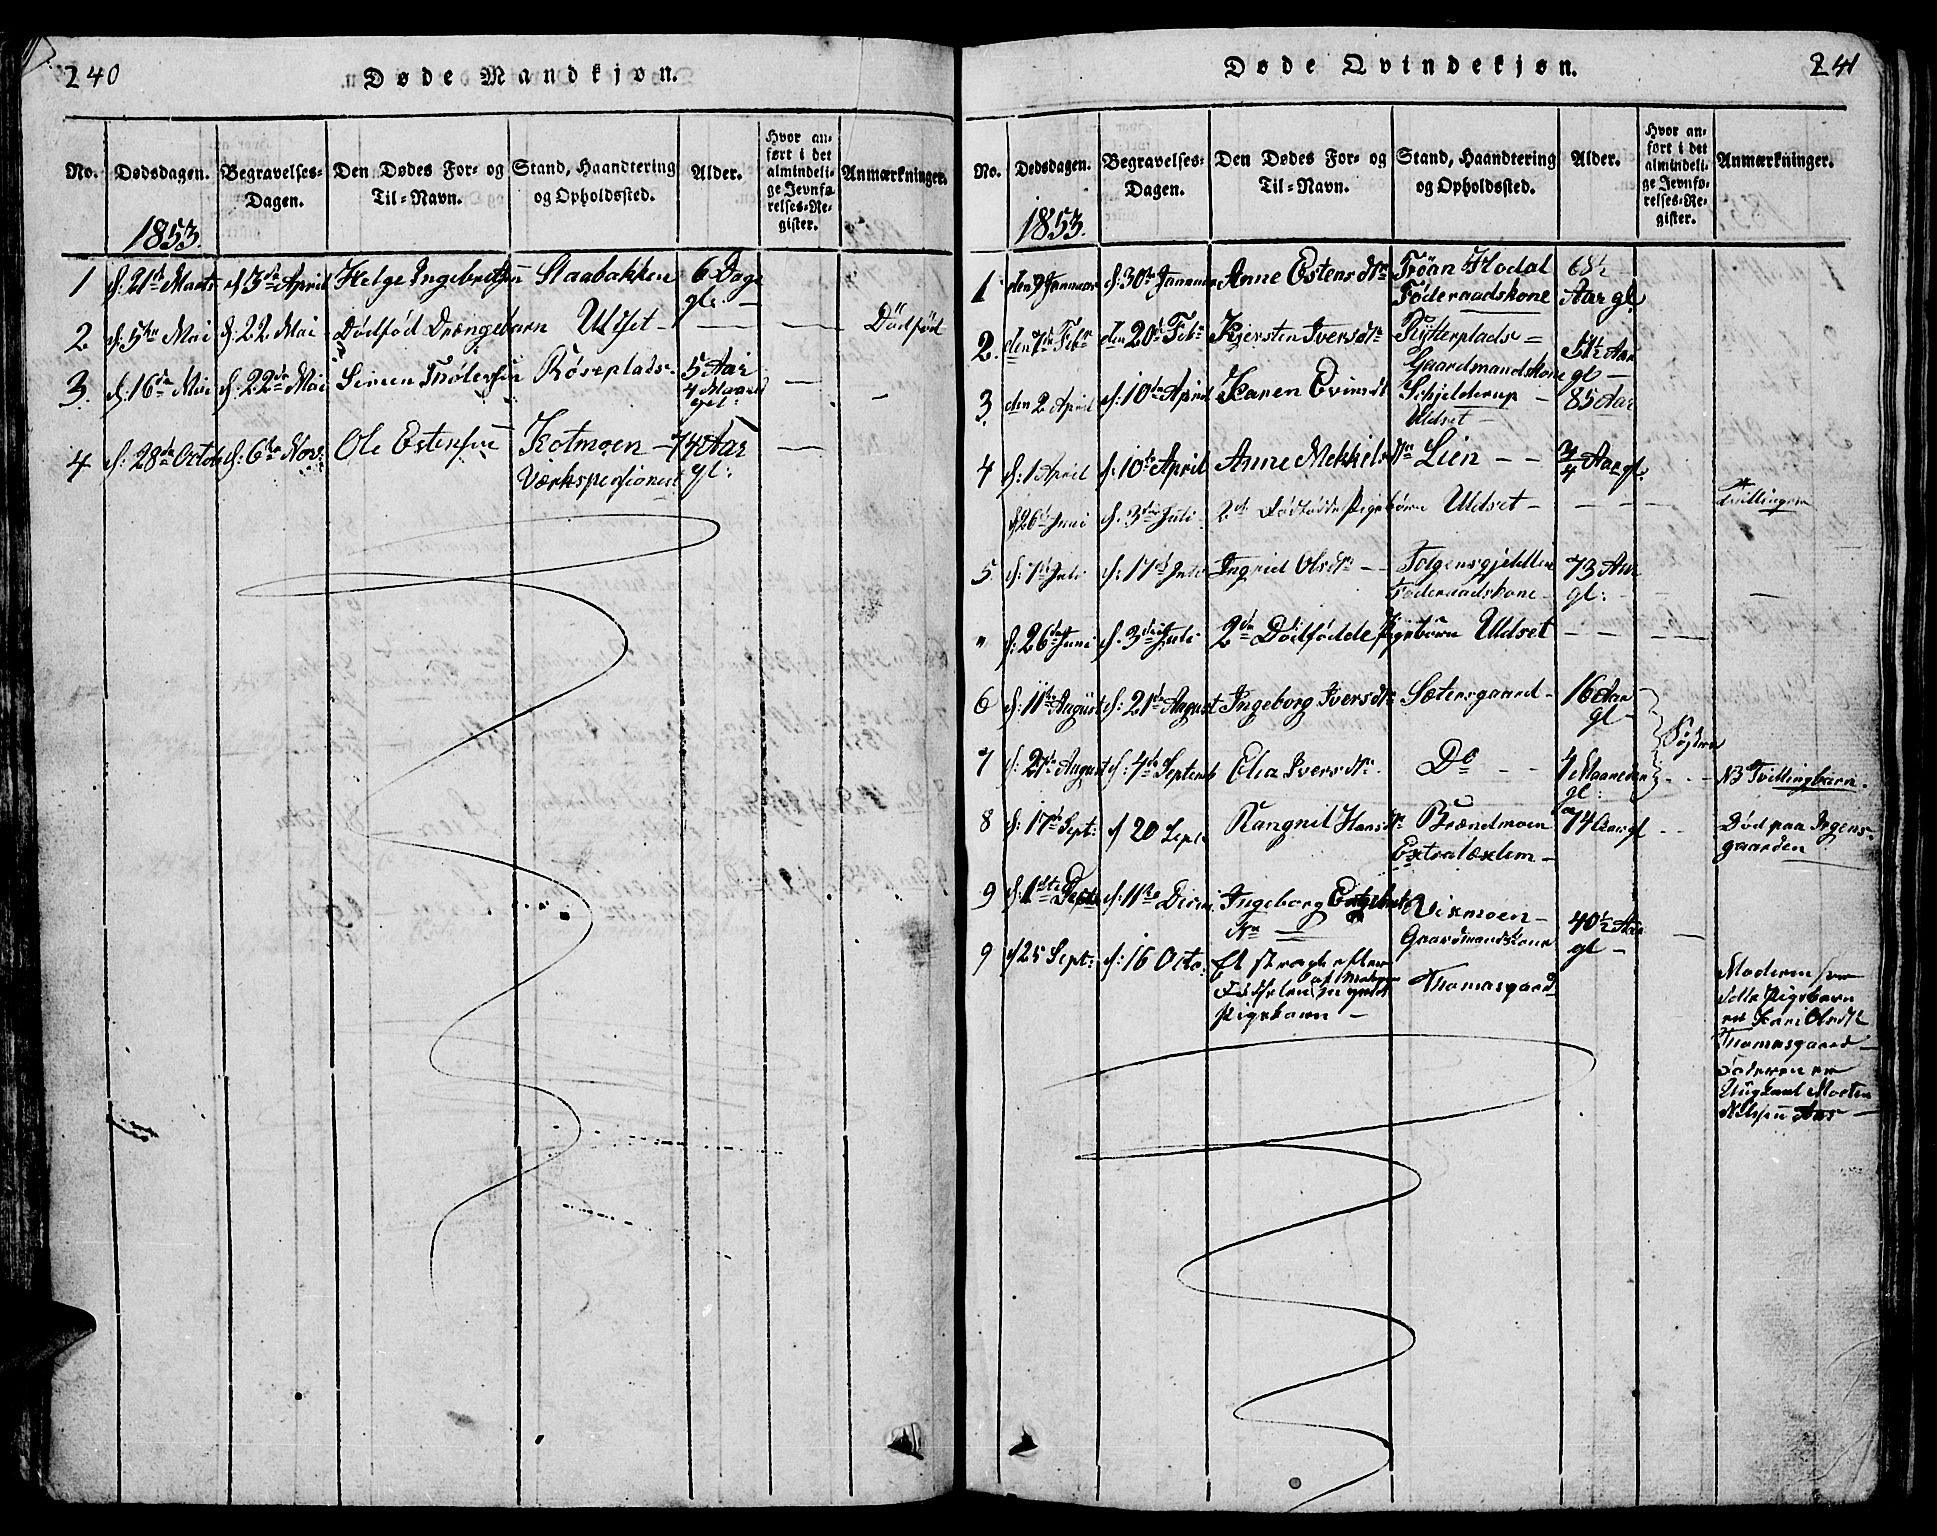 240
Døde Mandkjøn.
No.
Dødsdagen.
Begravelses-
Dagen.
Den Dødes For- og
Til-Navn.
Stand, Haandtering
og Opholdssted.
Alder.
Hvor an-
ført i det
almindeli-
ge Jevnfø-
relses-Re-
gister.
Anmærkninger.
1853.
1 d: 21de Marts d 3de April Helge Ingebretsen Staabakken 6 Dage
gl. —
2 d: 5te Mai d: 22 Mai Dødfød Drengebarn Udset — Dödfød
3. d: 16de Mai d: 22de Mai Simen Røseplads 5 Aar
4 Maaned
gl.
4 d: 28de Octob d: 6te Nov: Ole Estensen Kotmoen 74 Aar
Værkspensionist gl:
Døde Qvindekjøn.
241
No.
Dødsdagen.
Begravelses-
Dagen.
Den Dødes For- og
Til-Navn.
Stand, Haandtering
og Opholdssted.
Alder.
Hvor an-
ført i det
almindeli-
ge Jevnfø-
relses-Re-
gister.
Anmærkninger.
1853.
1 den 9 Januar d: 30te Januar Anne Estensdtr Trøan Hodal 68½
Föderaadskone Aar gl.
2. den 7de Febr den 20de Febr Kjersten Iversdtr Rytterplads =
51½ Aar
Gaardmandskone gl —
3. den 2 April d: 10de April Karen Evindt Schjelderup 85 Aar
Udset —
4 d: 1 April d: 10de April Anne Mekkelsdtr Lien — — ¾ Aar gl.
d 26de Juni d: 3die Juli 2de Dødfødte Pigebörn Udset — Tvillinger
5. d: 7de Juli d: 17de Juli Ingrid Olsdtr — Tolgensgjelten 73 Aar
Föderaadskone — gl:
" d: 26de Juni d: 3die Juli 2de Dödfødde Pigebörn Udset
6 d: 11te August d: 21de August Ingeborg Iversdtr Sætersgaard — 16 Aar
gl —
Søstre
7 d: 27de August d: 4de Septemb Elia Iversdtr. Do — — 4 Maaneder
gl: NB Tvillingbarn.
8 d: 17de Sept: d 20 Sept Rangnil Hansdtr Brændmoen 74 Aar gl Död paa Irgens-
Extralæxlem — gaarden
9 d: 1ste d: 11te Ingeborg
dtr — Vixmoen — 40½ Aar
Gaardmandskone gl —
9 d 25 Sept: d: 16 Octo. Et strax efter
Födselen
Pigebarn — Thomasgaard
Moderen for
dette Pigebarn
er Kari Olsdtr
Thomasgaard —
Faderen er
Ungkarl Morten
Nilsen Aas —